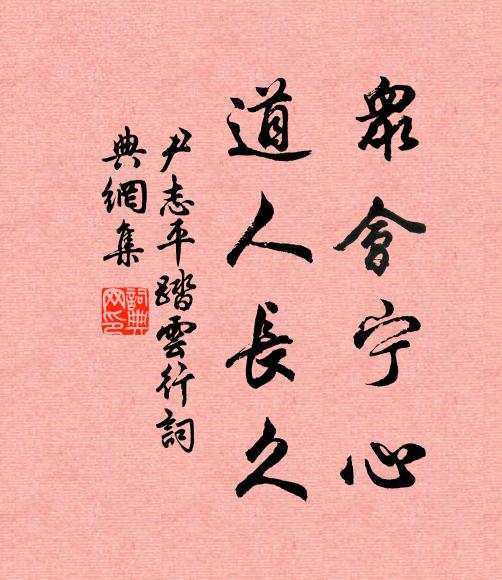 眾會宁心
道人長久
尹志平踏雲行詞
典網集
詞典網印